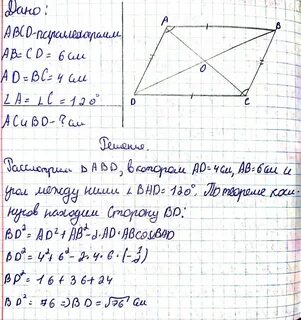 Дано:
ABCD-параллелограмм
AB=CD=6см
AD=BC=4см
∠A=∠C=120°
AC и BD-?см
A
B
O
D
C
Решение.
Рассмотрим △ABD, в котором AD=4см, AB=6см и
угол между ними ∠BAD=120°. По теореме коси-
нусов находим сторону BD:
BD²=AD²+AB²-2·AD·ABcosBAD
BD²=4²+6²-2·4·6·(-1/2)
BD²=16+36+24
BD²=76⇒BD=√76 см